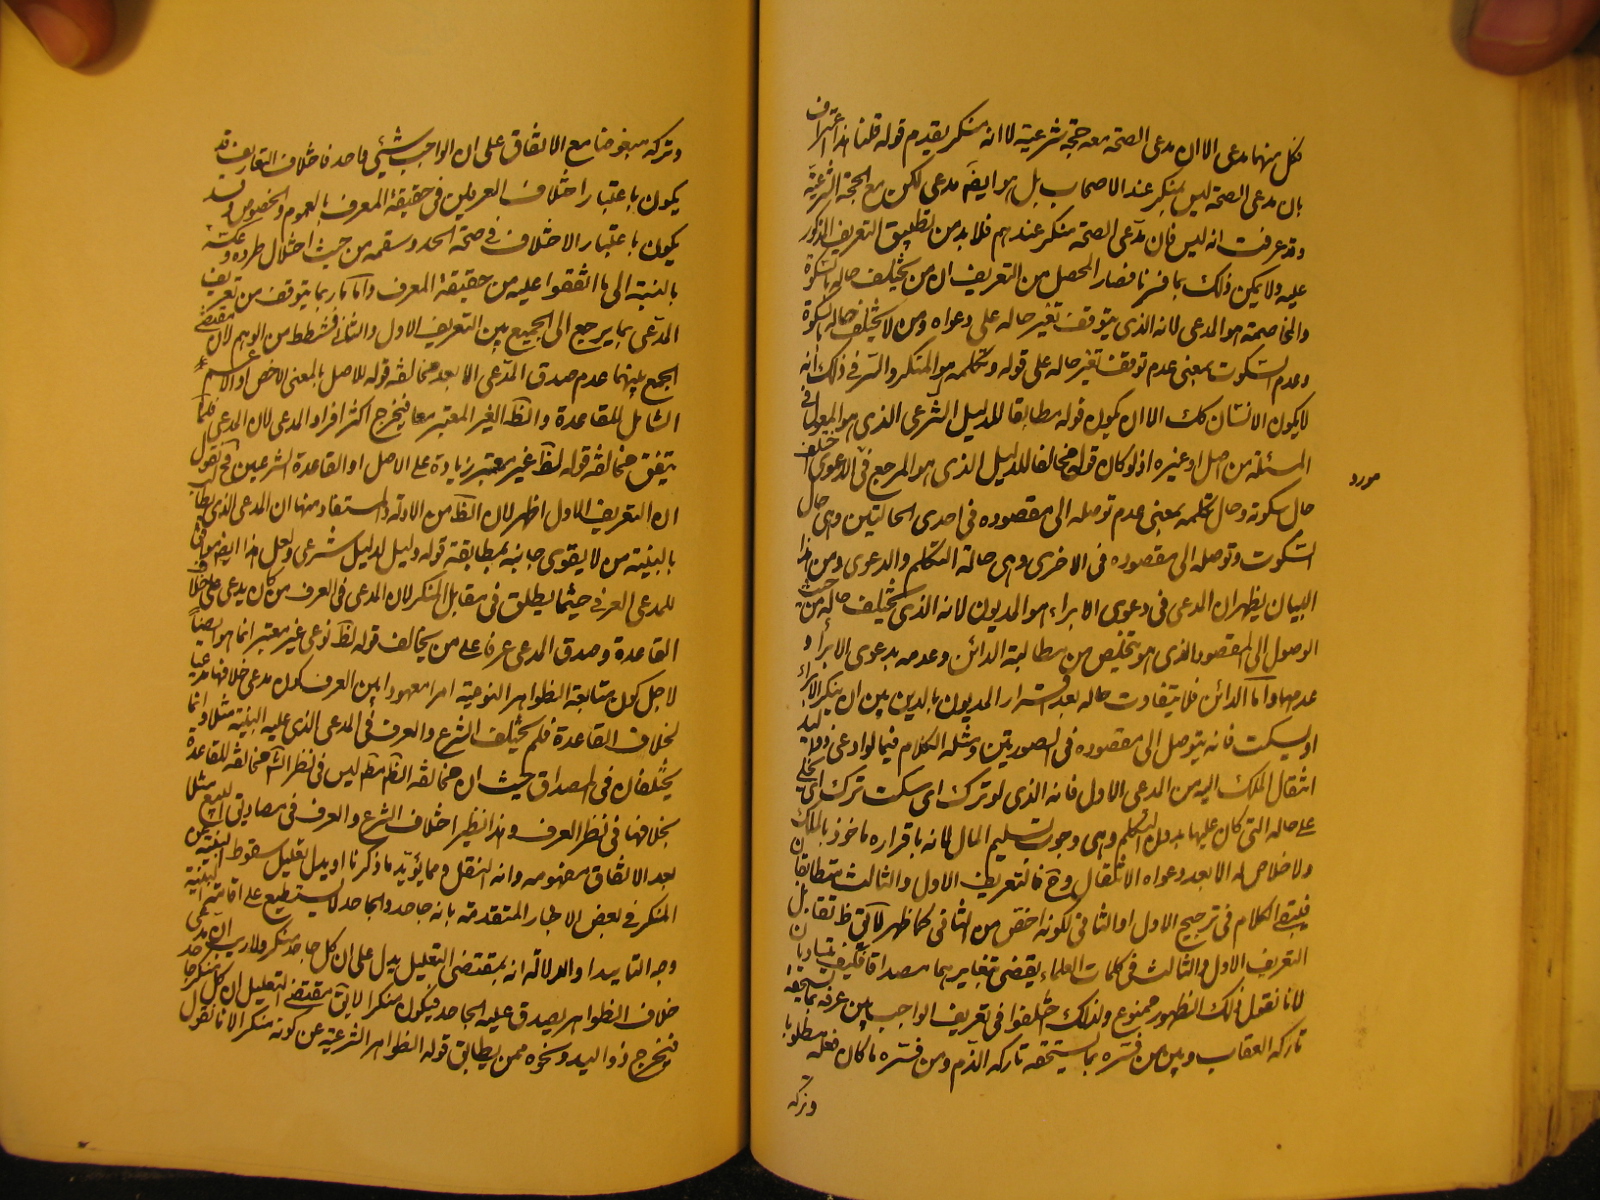 فكل منهما مدعى الا ان مدعى الصحة معه حجة شرعية لا انه منكر يقدم قوله قلنا هذا اعتراف
بان مدعى الصحة ليس بمنكر عند الاصحاب بل هو ايضا مدعى لكن مع الحجة الشرعية
وقد عرفت انه ليس فان مدعى الصحة منكر عندهم فلا بد من تطبيق التعريف المذكور
عليه ولا يمكن ذلك بما فسرنا فصار المحصل من التعريف ان من يختلف حاله بالسكوت
والمخاصمة هو المدعى لانه الذى يتوقف تغير حاله على دعواه ومن لا يختلف حاله بالسكوت
وعدم السكوت بمعنى عدم توقف تغير حاله على قوله وتكلمه هو المنكر والسر فى ذلك انه
لا يكون الانسان كك الا ان يكون قوله مطابقا للدليل الشرعى الذى هو المعول فى
المسئلة من اصل او غيره اذ لو كان قوله مخالفا للدليل الذى هو المرجع فى الدعوى اختلف
مورد
حال سكوته وحال تكلمه بمعنى عدم توصله الى مقصوده فى احدى الحالتين وهى حال
السكوت وتوصله الى مقصوده فى الاخرى وهى حالة التكلم والدعوى ومن هذا
البيان يظهر ان المدعى فى دعوى الابراء هو المديون لانه الذى يختلف حاله من حيث
الوصول الى المقصود الذى هو تخليص من مطالبة الدائن وعدمه بدعوى الابراء و
عدمها واما الدائن فلا يتفاوت حاله بعد اقرار المديون بالدين بين ان ينكر الابراء
او يسكت فانه يتوصل الى مقصوده فى الصورتين ومثله الكلام فيما لو ادعى ذو اليد
انتقال الملك اليه من المدعى الاول فانه الذى لو ترك اى سكت ترك اى يخلى
على حاله التى كان عليها بدون التكلم وهى وجوب تسليم المال لانه باقراره ماخوذ بالملك
ولا خلاص له الا بعد دعواه الانتقال وح فالتعريف الاول والثالث متطابقان
فيبقى الكلام فى ترجيح الاول او الثانى لكونه اخص من الثانى كما ظهر لا يق ظ تقابل
التعريف الاول والثالث فى كلمات العلماء يقضى بتغايرهما مصداقا فكيف يتساويان
لانا نقول ذلك الظهور ممنوع ولذلك اختلفوا فى تعريف الواجب بين من عرفه بما يستحق
تاركه العقاب وبين من فسره بما يستحقه تاركه الذم ومن فسره ما كان فعله مطلوبا
وتركه
وتركه مبغوضا مع الاتفاق على ان الواجب شيئى واحد فاختلاف التعاريف قد
يكون باعتبار اختلاف المعرفين فى حقيقة المعرف بالعموم والخصوص وقد
يكون باعتبار الاختلاف فى صحة الحد وسقمه من حيث اختلال طرده وعكسه
بالنسبة الى ما اتفقوا عليه من حقيقة المعرف واما ما ربما يتوقف من تعريف
المدعى بما يرجع الى الجميع بين التعريف الاول والثانى فشطط من الوهم لان مقتضى
الجمع بينهما عدم صدق المدعى الا بعد مخالفة قوله للاصل بالمعنى الاخص او الاعم
الشامل للقاعدة والظ الغير المعتبر معا فيخرج اكثر افراد المدعى لان المدعى قلما
يتفق مخالفة قوله لظ غير معتبر زيادة على الاصل او القاعدة الشرعيين فح نقول
ان التعريف الاول اظهر لان الظ من الادلة والمستفاد منها ان المدعى الذى يطالب
بالبينة من لا يقوى جانبه بمطابقة قوله دليل لدليل شرعى ولعل هذا ايضا موافق
للمدعى العرفى حيثما يطلق فى مقابل المنكر لان المدعى فى العرف من كان يدعى على خلاف
القاعدة وصدق المدعى عرفا على من يخالف قوله لظ نوعى غير معتبر انما هو ايضا
لاجل كون متابعة الظواهر النوعية امرا معهودا بين العرف كون مدعى خلافها مدعيا
لخلاف القاعدة فلم يختلف الشرع والعرف فى المدعى الذى عليه البينة مثلا وانما
يختلفان فى المصداق حيث ان مخالفة الظ مط ليس فى نظر الشرع مخالفة للقاعدة
بخلافها فى نظر العرف وهذا نظير اختلاف الشرع والعرف فى مصاديق البيع مثلا
بعد الاتفاق مفهومه وانه النقل ومما يؤيد ما ذكرنا او يدل تعليل سقوط البينة عن
المنكر فى بعض الاخبار المتقدمة بانه جاحد والجاحد لا يستطيع على اقامة البينة
وجه التاييد او الدلالة انه بمقتضى التعليل يدل على ان كل جاحد منكر ولا ريب ان مدعى
خلاف الظواهر يصدق عليه الجاحد فيكون منكرا لا يق مقتضى التعليل ان كل منكر جاحد
فيخرج ذو اليد ونحوه ممن يطابق قوله الظواهر الشرعية عن كونه منكرا لانا نقول